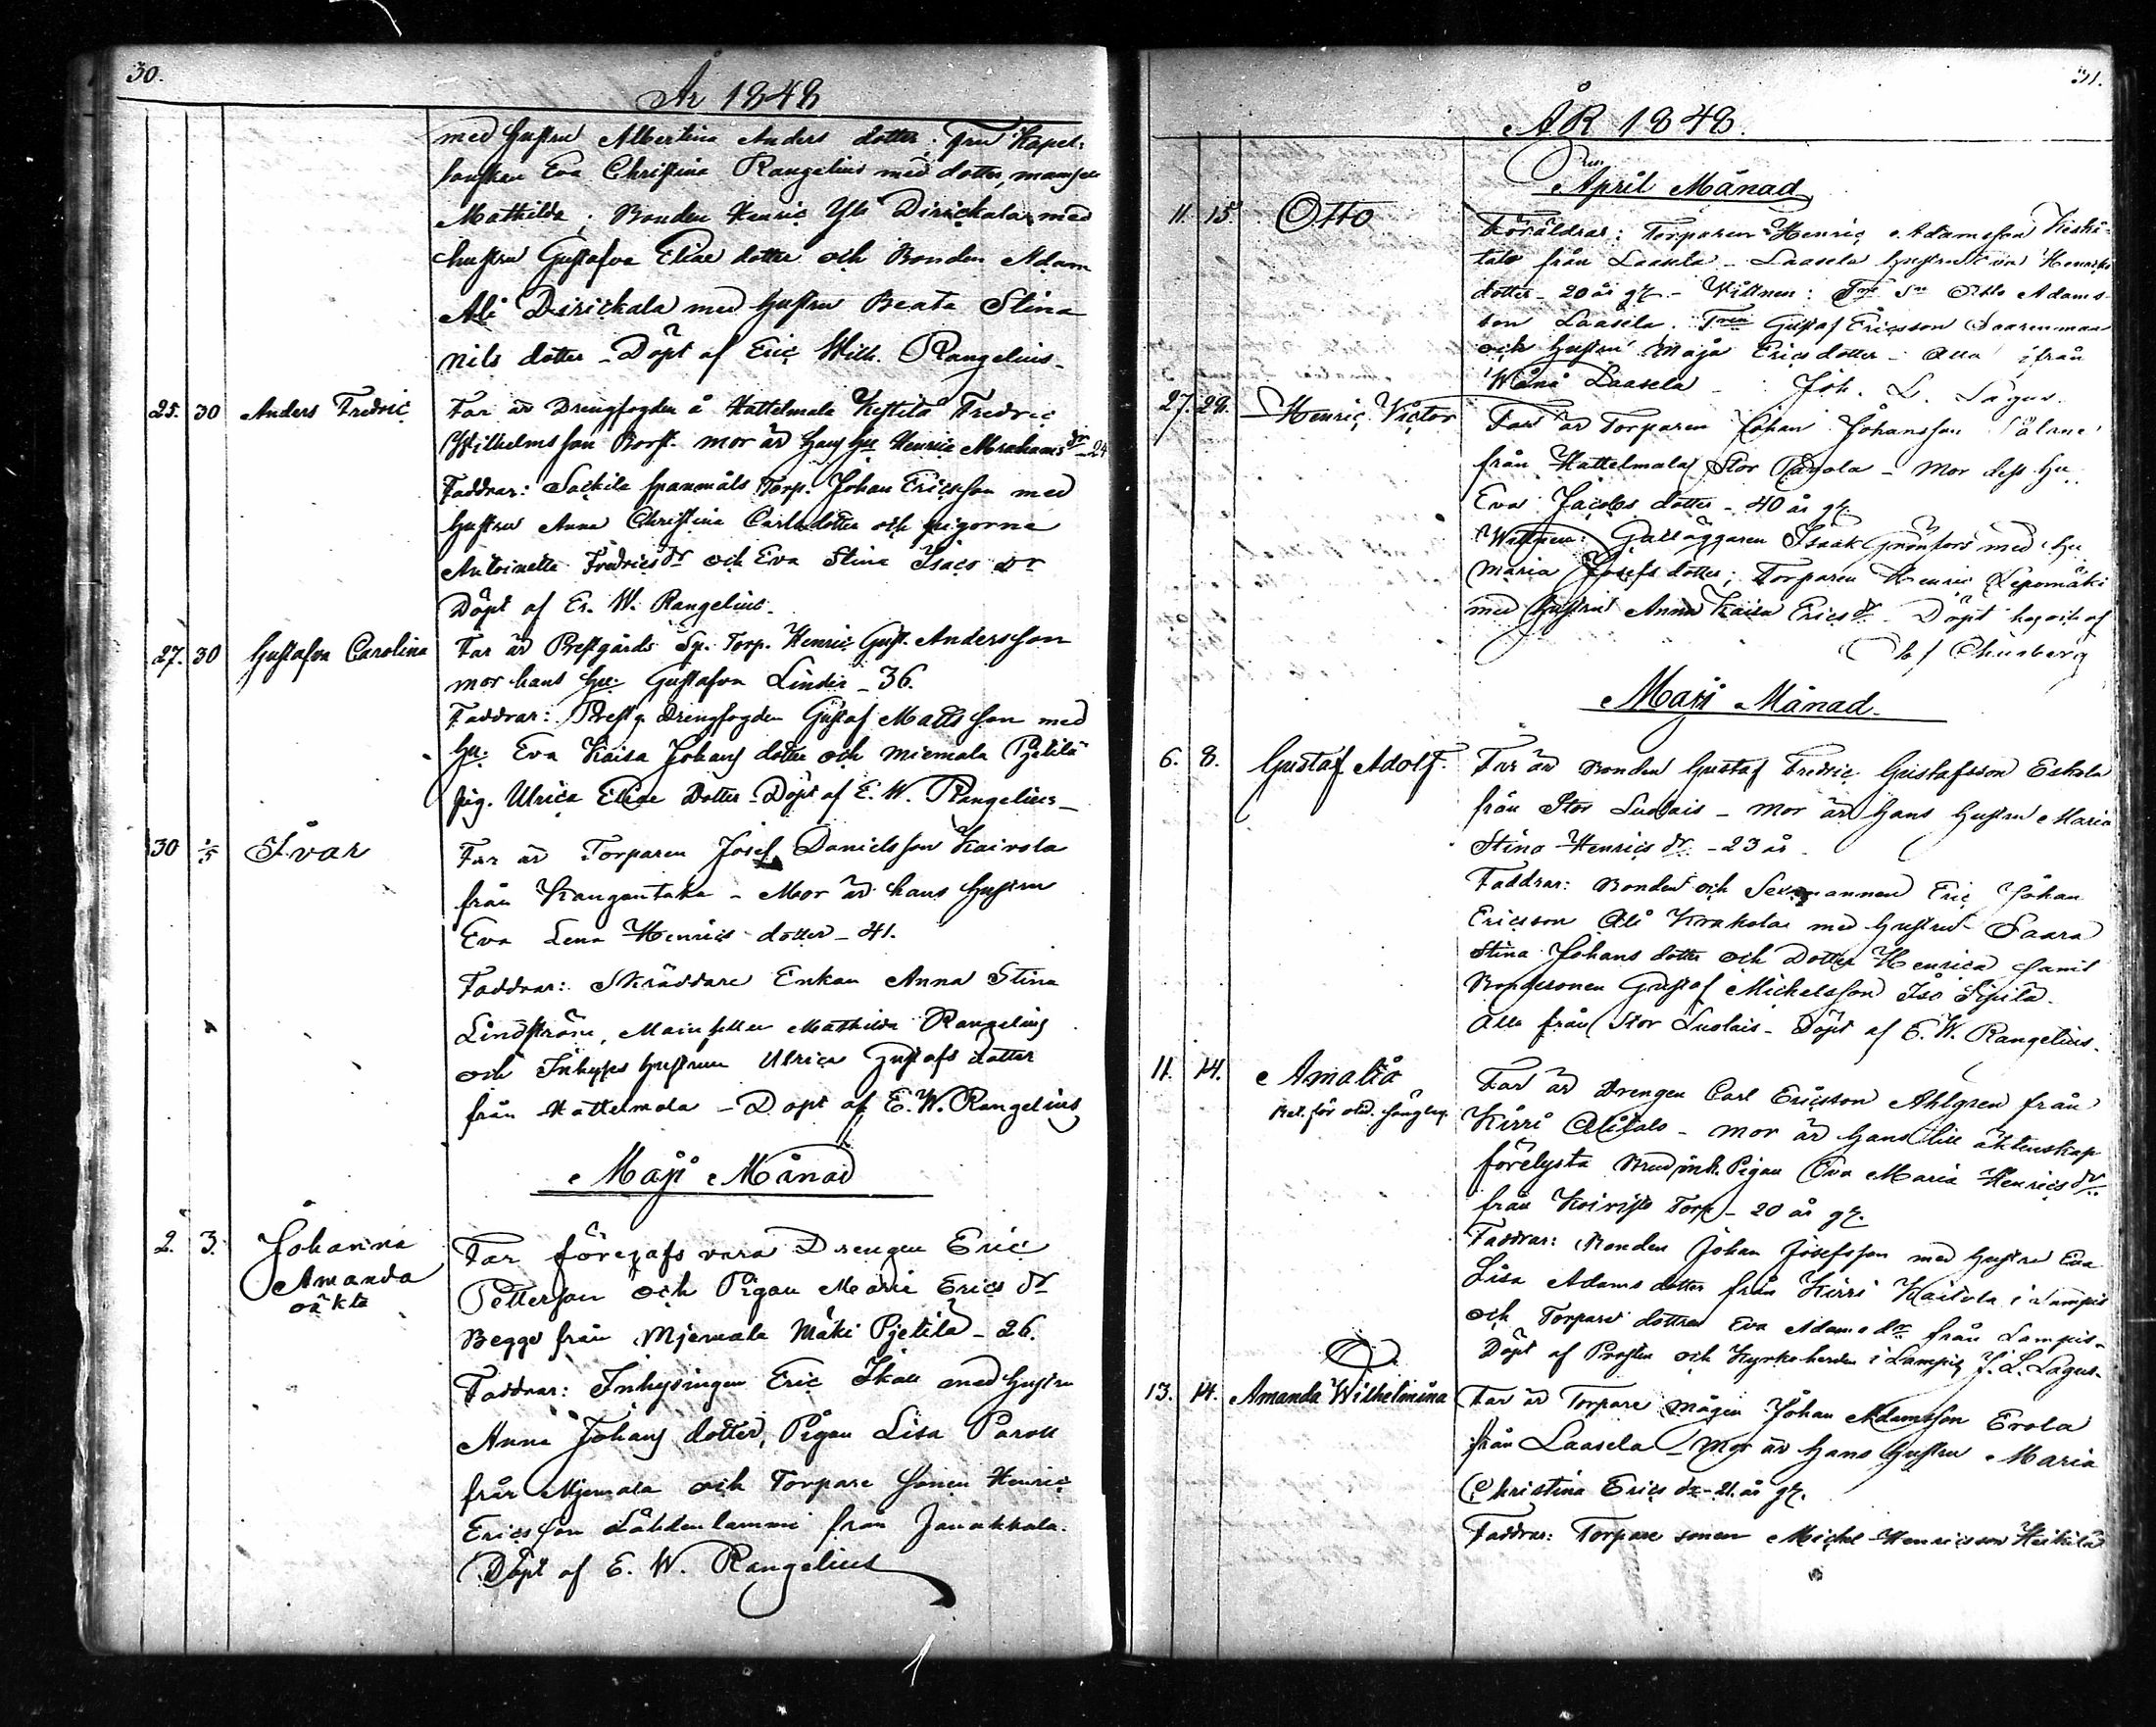 30.
År 1848
med hustru Albertina Anders dotter; fru Kapel-
Eva Christina Rangelius med dotter, mamsell
Mathilda; Bonden Henric Yli Dirickala med
hustru Gustafva Eliae dotter och Bonden Adam
Ali Dirickala med hustru Beata Stina
Nils dotter - Döpt af Eric Wilh. Rangelius -
25. 30 Anders Fredric Far är Drengfogden å Hattelmala Kestilä Fredric
Wilhelmsson Borg. mor är hans hu Henrica Abrahams dr - 24
Faddrar: Sackila spanmåls Torp. Johan Ericsson med
hustru Anna Christina Carls dotter och pigorna
Antoinetta Fredrics dr och Eva Stina Isacs dr
Döpt af Er. W. Rangelius.
27. 30 Gustafva Carolina Far är Prestgårds Sp. Torp. Henric Gust. Andersson
mor hans hu. Gustafva Linder - 36.
Faddrar: Prestg. Drengfogden Gustaf Mattsson med
hu. Eva Kaisa Johans dotter och Miemala Pjetilä
pig. Ulrica Eliae Dotter - Döpt af E. W. Rangelius -
30 1/5 Ivar Far är Torparen Josef Danielsson Kairola
från Kangantaka - Mor är hans hustru
Eva Lena Henrics dotter - 41.
Faddrar: Skräddare Enkan Anna Stina
Lindström, Mamsellen Mathilda Rangelius
och Inhyses hustrun Ulrica Gustafs dotter
från Hattelmala - Döpt af E. W. Rangelius
Maji Månad
2. 3. Johanna Far föregafs vara Drengen Eric
Amanda Pettersson och Pigan Maria Erics dr
oäkta Begge från Mjemala Mäki Pjetilä - 26.
Faddrar: Inhysingen Eric Skau med hustru
Anna Johans dotter, Pigan Lisa Paroll
från Mjemala och Torpare sonen Henric
Ericsson Lähdenlammi från Janakkala.
Döpt af E. W. Rangelius
31.
ÅR 1848.
April Månad
11. 15 Otto Föräldrar: Torparen Henric Adamsson Keski-
talo från Laasela - Laasela hustru Eva Henriks
dotter - 20 år gl. - Vittnen: Otto Adams-
son Laasela. Gustaf Ericsson Saarenmaa
och hustru Maja Erics dotter - Alla ifrån
Wånå Laasela - Joh. L. Lagus.
27. 29. Henric Victor Far är Torparen Johan Johansson
från Hattelmala Stor - Mor dess hu.
Eva Jacobs dotter - 40 år gl.
Wittnen: Isaak Grönfors med hu
Maria Josefs dotter; Torparen Henric Lepomäki
med hustru Anna Kaisa Erics dr - Döpt af
Maji Månad
6. 8. Gustaf Adolf. Far är Bonden Gustaf Fredric Gustafsson Eskola
från Stor Luolais - Mor är hans hustru Maria
Stina Henrics dr. - 23 år.
Faddrar: Bonden och Sexmannen Eric Johan
Ericsson Ali Krakola med hustru Saara
Stina Johans dotter och Dotter Henrica samt
Bondesonen Gustaf Michelsson Iso Sipilä.
Alla från Stor Luolais - Döpt af E. W. Rangelius.
11. 14. Amalia Far är Drengen Carl Ericsson Ahlgren från
Kirri Alitalo - mor är hans till äktenskap
förelysta Brud Pigan Eva Maria Henrics dr
från Koivisto Torp - 20 år gl.
Faddrar: Bonden Johan Josefsson med hustru Eva
Lisa Adams dotter från Kirri Kaitola i Lampis
och Torpare dottren Eva Adams dr från Lampis -
Döpt af Prosten och Kyrkoherden i Lampis J. L. Lagus.
13. 14. Amanda Wilhelmina Far är Torpare mågen Johan Adamsson Erola
från Laasela - Mor är hans hustru Maria
Christina Erics dr - 21 år gl.
Faddrar: Torpare sonen Michel Henricsson Heikilä